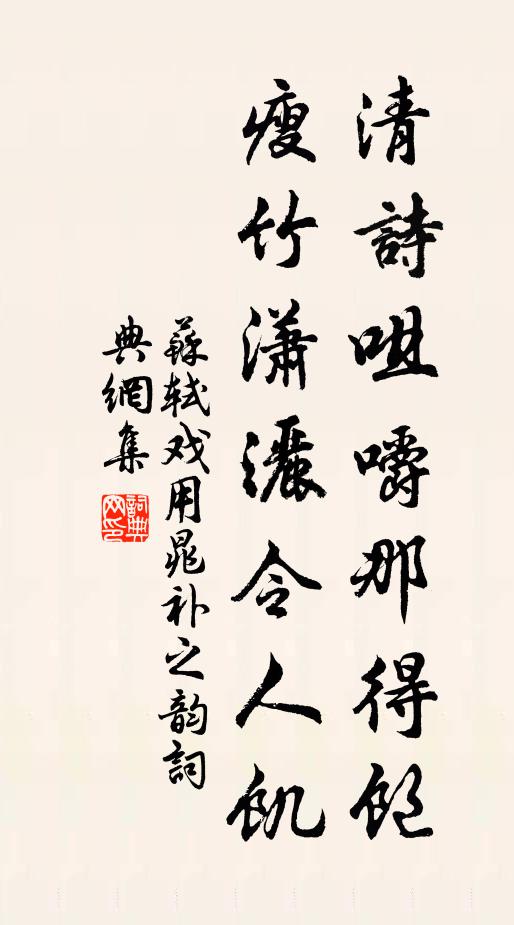 清詩咀嚼那得飽
瘦竹瀟灑令人飢
蘇軾戏用晁补之韵詞
典網集
詞典
网印